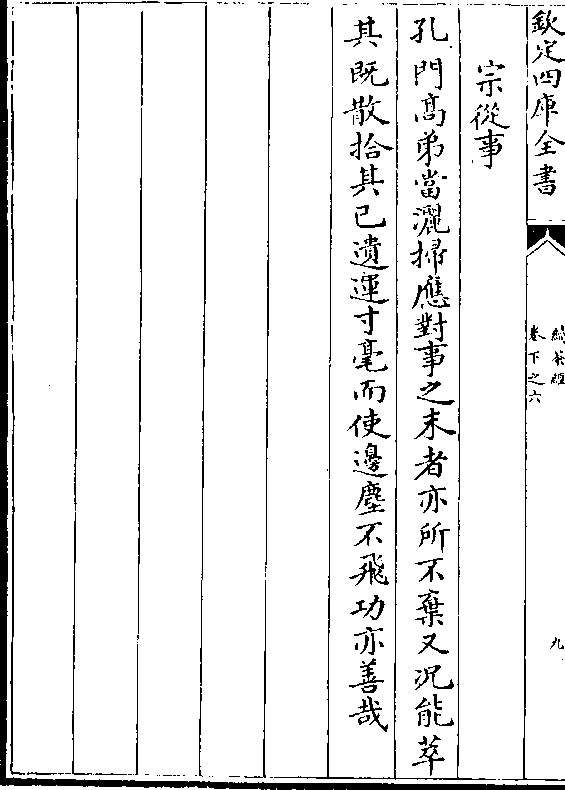 欽定四庫全書
續茶經
卷下之六
九
宗從事
孔門髙弟當灑掃應對事之末者亦所不棄又況能萃
其既散拾其已遺運寸毫而使邊塵不飛功亦善哉